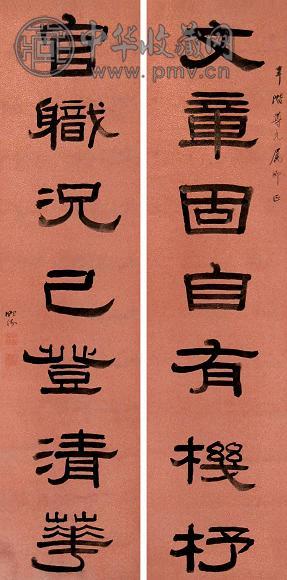 中华收藏网
www.pmv.cn
尊兄屬正
文章固自有機杼
官職況已登清華